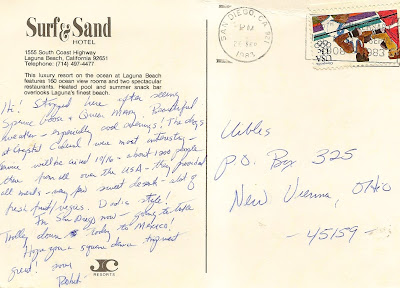 Surf & Sand
HOTEL
1555 South Coast Highway
Laguna Beach, California 92651
Telephone: (714) 497-4477
This luxury resort on the ocean at Laguna Beach
features 160 ocean view rooms and two spectacular
restaurants. Heated pool and summer snack bar
overlooks Laguna's finest beach.
Hi! Stopped here after seeing
Spruce Goose & Queen Mary. Beautiful
weather - especially cook evenings! The days
at Crystal Cathedral were most interesting -
there from all over the USA - they provided
all meals - very few sweet deserts - a lot of
fresh fruit/vegies.
In San Diego now - going to take
Trolley down today to Mexico!
Hope your square dance
great!
JC
RESORTS
SAN DIEGO, CA 921
PM
1983
USA
Uibles
P.O. Box 325
New Vienna, Ohio
- 45159 -